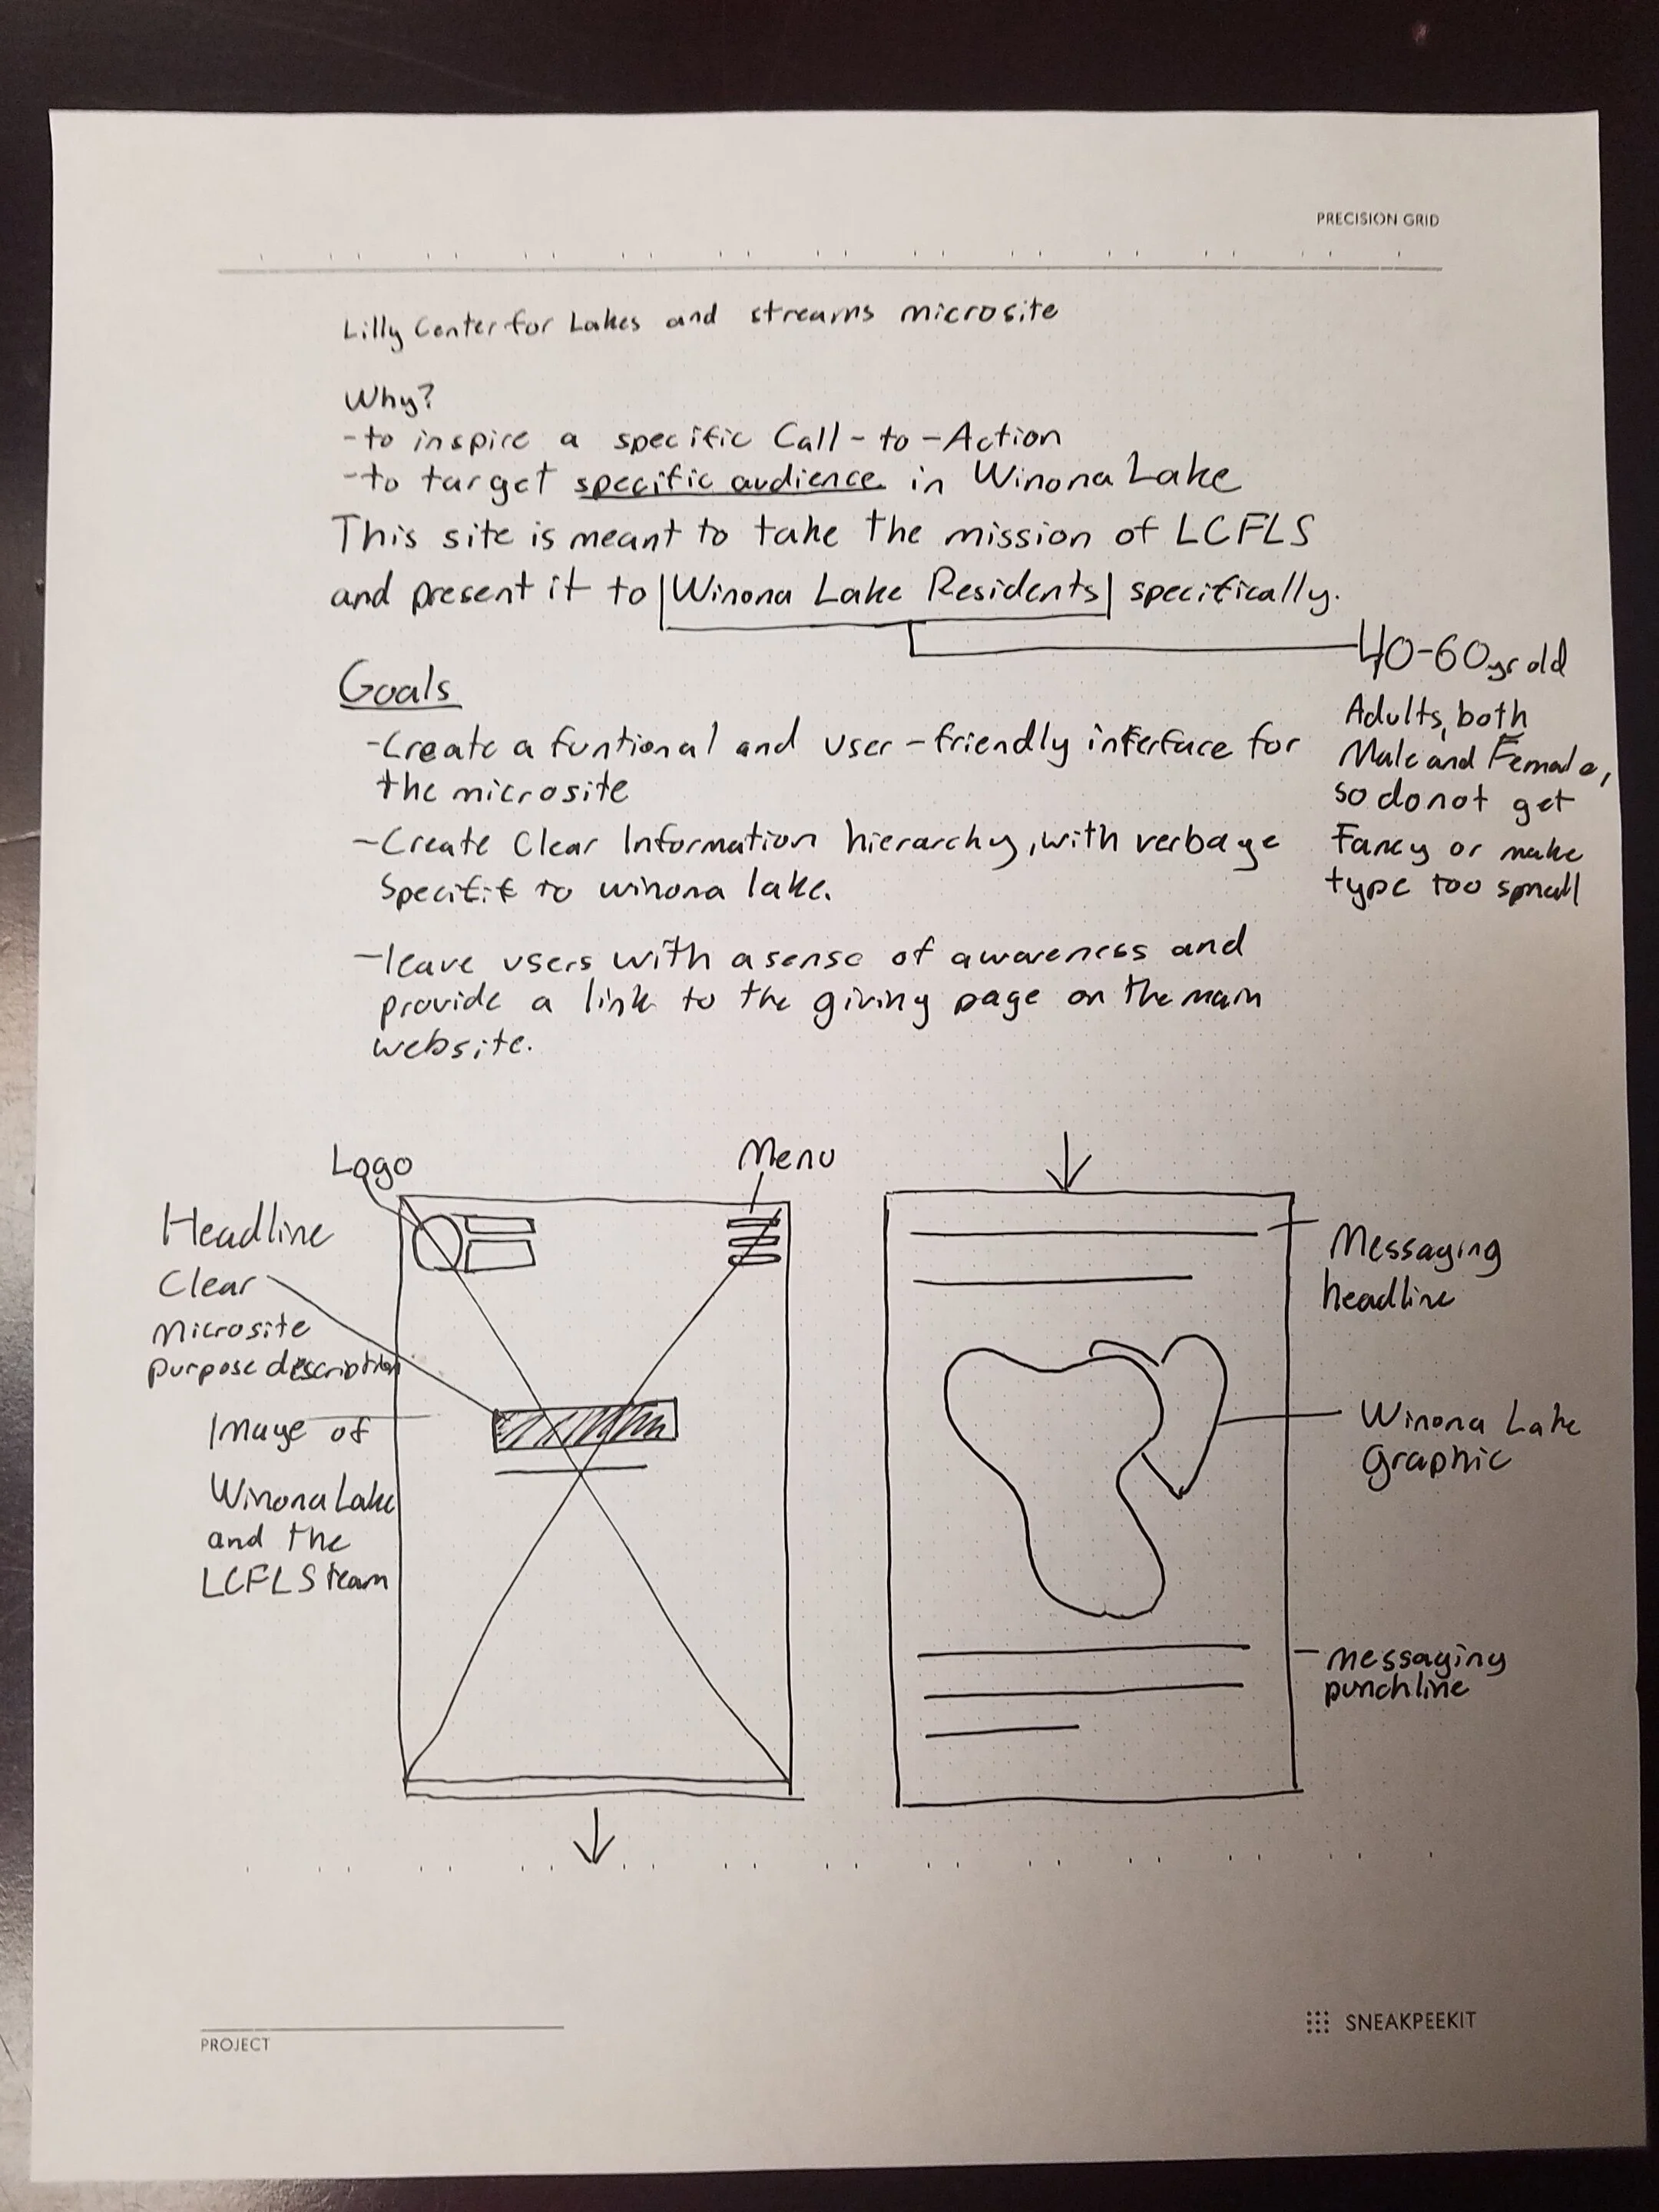 PRECISION GRID
Lilly Center for Lakes and streams microsite
Why?
-to inspire a specific Call-to-Action
-to target specific audience in Winona Lake
This site is meant to take the mission of LCFLS
and present it to Winona Lake Residents specifically.
40-60 yr old
Adults, both
Male and Female,
so do not get
Fancy or make
type too small
Goals
-Create a funtional and user-friendly interface for
the microsite
-Create Clear Information hierarchy, with verbage
Specific to winona lake.
-leave users with a sense of awareness and
provide a link to the giving page on the main
website.
Logo
Menu
Headline
Clear
Microsite
purpose description
Image of
Winona Lake
and the
LCFLS team
Messaging
headline
Winona Lake
Graphic
Messaging
punchline
PROJECT
SNEAKPEEKIT